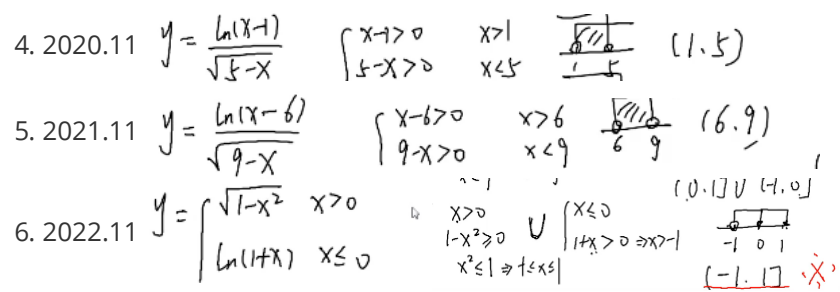 4. 2020.11 y = ln(x-1)/√(5-x) { x-1>0 x>1 1 5 (1.5)
5-x>0 x<5
5. 2021.11 y = ln(x-6)/√(9-x) { x-6>0 x>6 6 9 (6.9)
9-x>0 x<9
6. 2022.11 y = { √(1-x²) x>0
ln(1+x) x≤0
x>0
1-x²≥0
x²≤1 ⇒ -1≤x≤1
∪
{ x≤0
1+x>0 ⇒x>-1
(0.1]∪(-1,0]
-1 0 1
(-1.1]